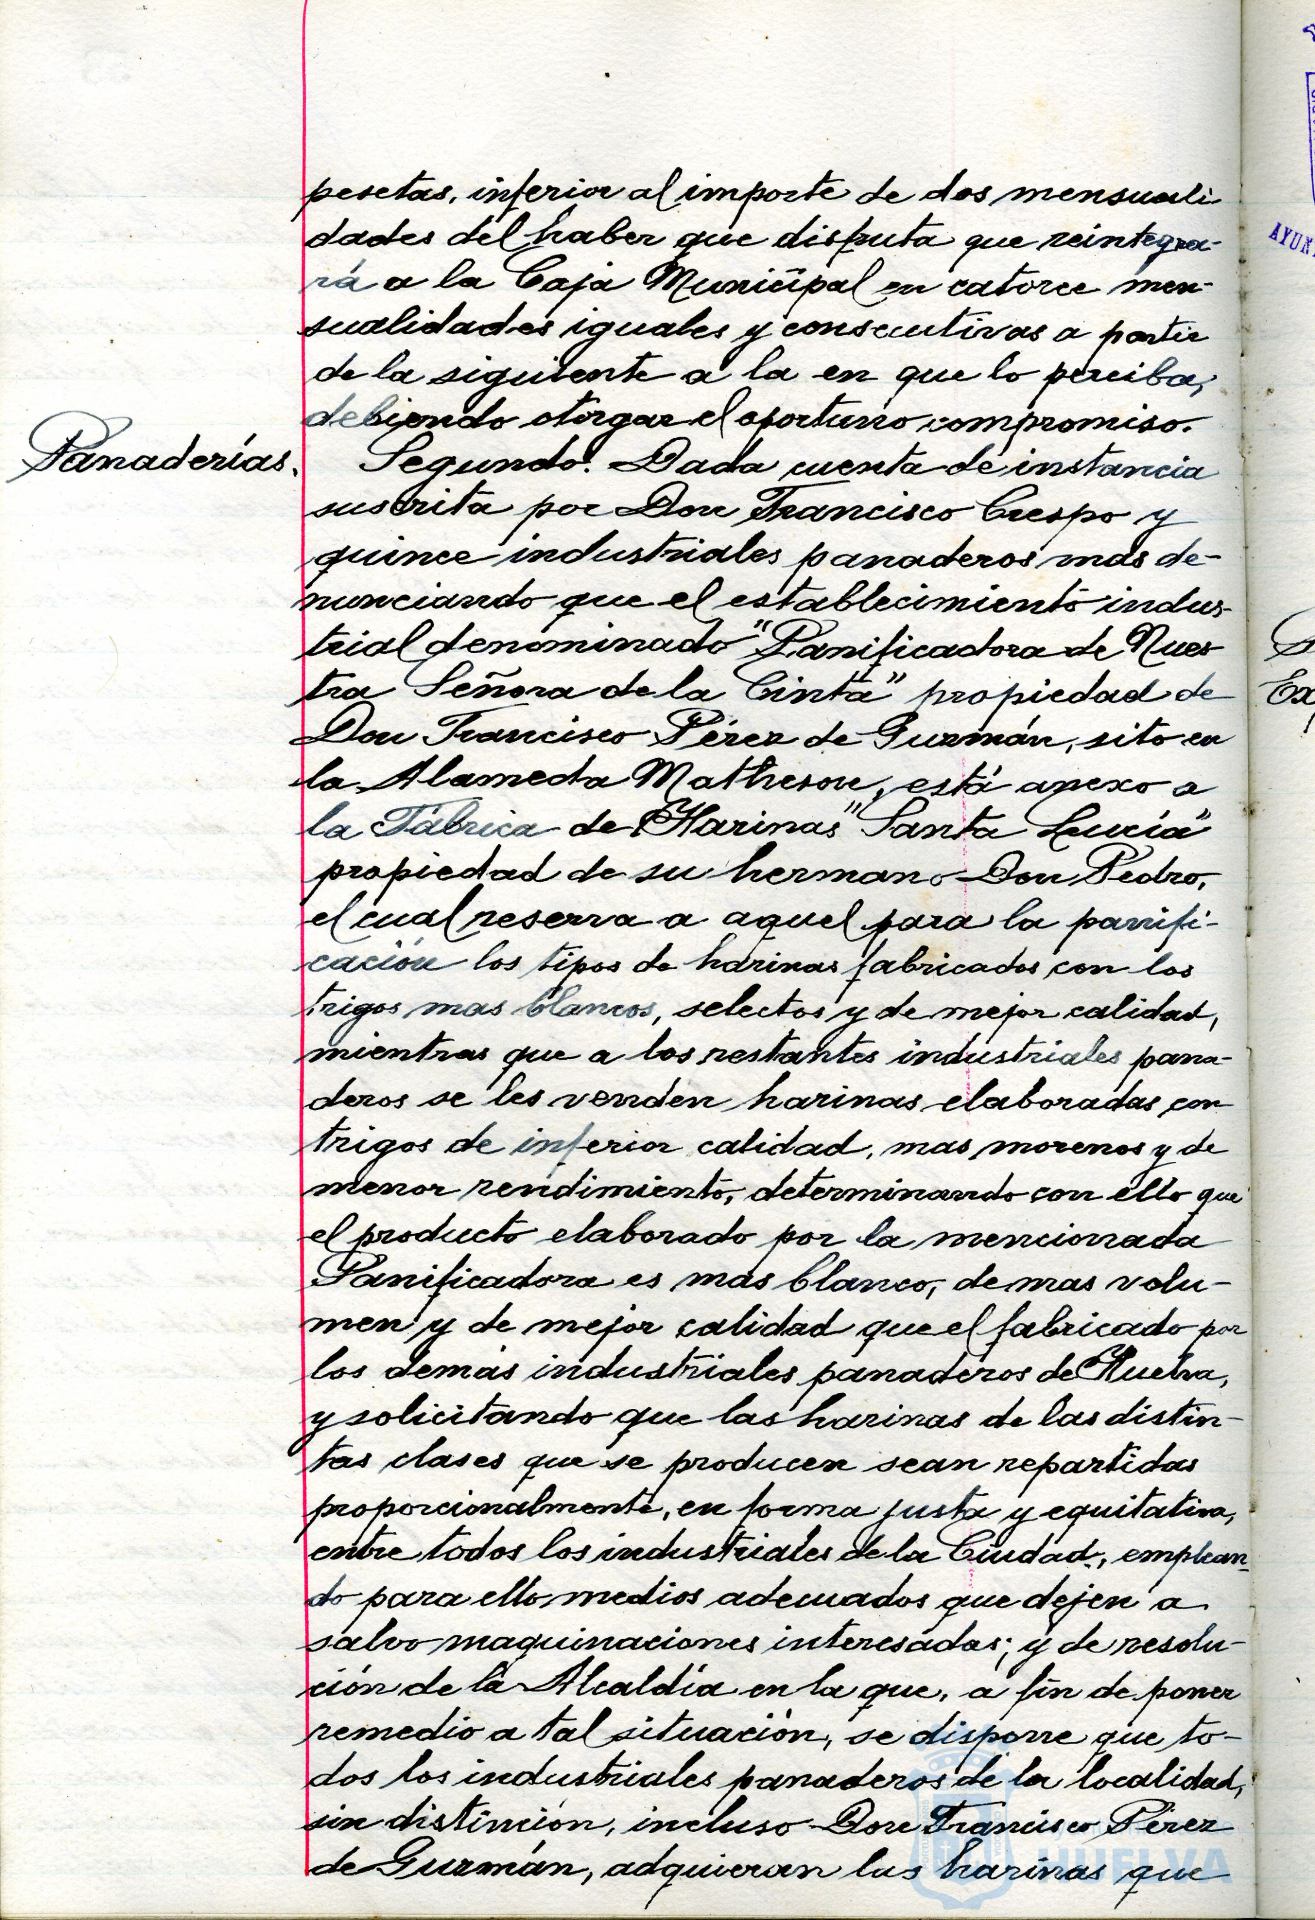 pesetas, inferior al importe de dos mensuali-
dades del haber que disfruta que reintegra-
rá a la Caja Municipal en catorce men-
sualidades iguales y consecutivas a partir
de la siguiente a la en que lo perciba;
debiendo otorgar el oportuno compromiso.
Panaderías.
Segundo. Dada cuenta de instancia
suscrita por Don Francisco Crespo y
quince industriales panaderos más de-
nunciando que el establecimiento indus-
trial denominado "Panificadora de Nues-
tra Señora de la Cinta" propiedad de
Don Francisco Pérez de Guzmán, sito en
la Alameda Matheson, está anexo a
la Fábrica de Harinas "Santa Lucía"
propiedad de su hermano Don Pedro,
el cual reserva a aquel para la panifi-
cación los tipos de harinas fabricados con los
trigos mas blancos, selectos y de mejor calidad,
mientras que a los restantes industriales pana-
deros se les venden harinas elaboradas con
trigos de inferior calidad, mas morenos y de
menor rendimiento, determinando con ello que
el producto elaborado por la mencionada
Panificadora es mas blanco, de mas volu-
men y de mejor calidad que el fabricado por
los demás industriales panaderos de Huelva,
y solicitando que las harinas de las distin-
tas clases que se producen sean repartidas
proporcionalmente, en forma justa y equitativa,
entre todos los industriales de la Ciudad, emplean-
do para ello medios adecuados que dejen a
salvo maquinaciones interesadas; y de resolu-
ción de la Alcaldía en la que, a fin de poner
remedio a tal situación, se dispone que to-
dos los industriales panaderos de la localidad,
sin distinción, incluso Don Francisco Pérez
de Guzmán, adquieran las harinas que
HUELVA
AYUN
Ex